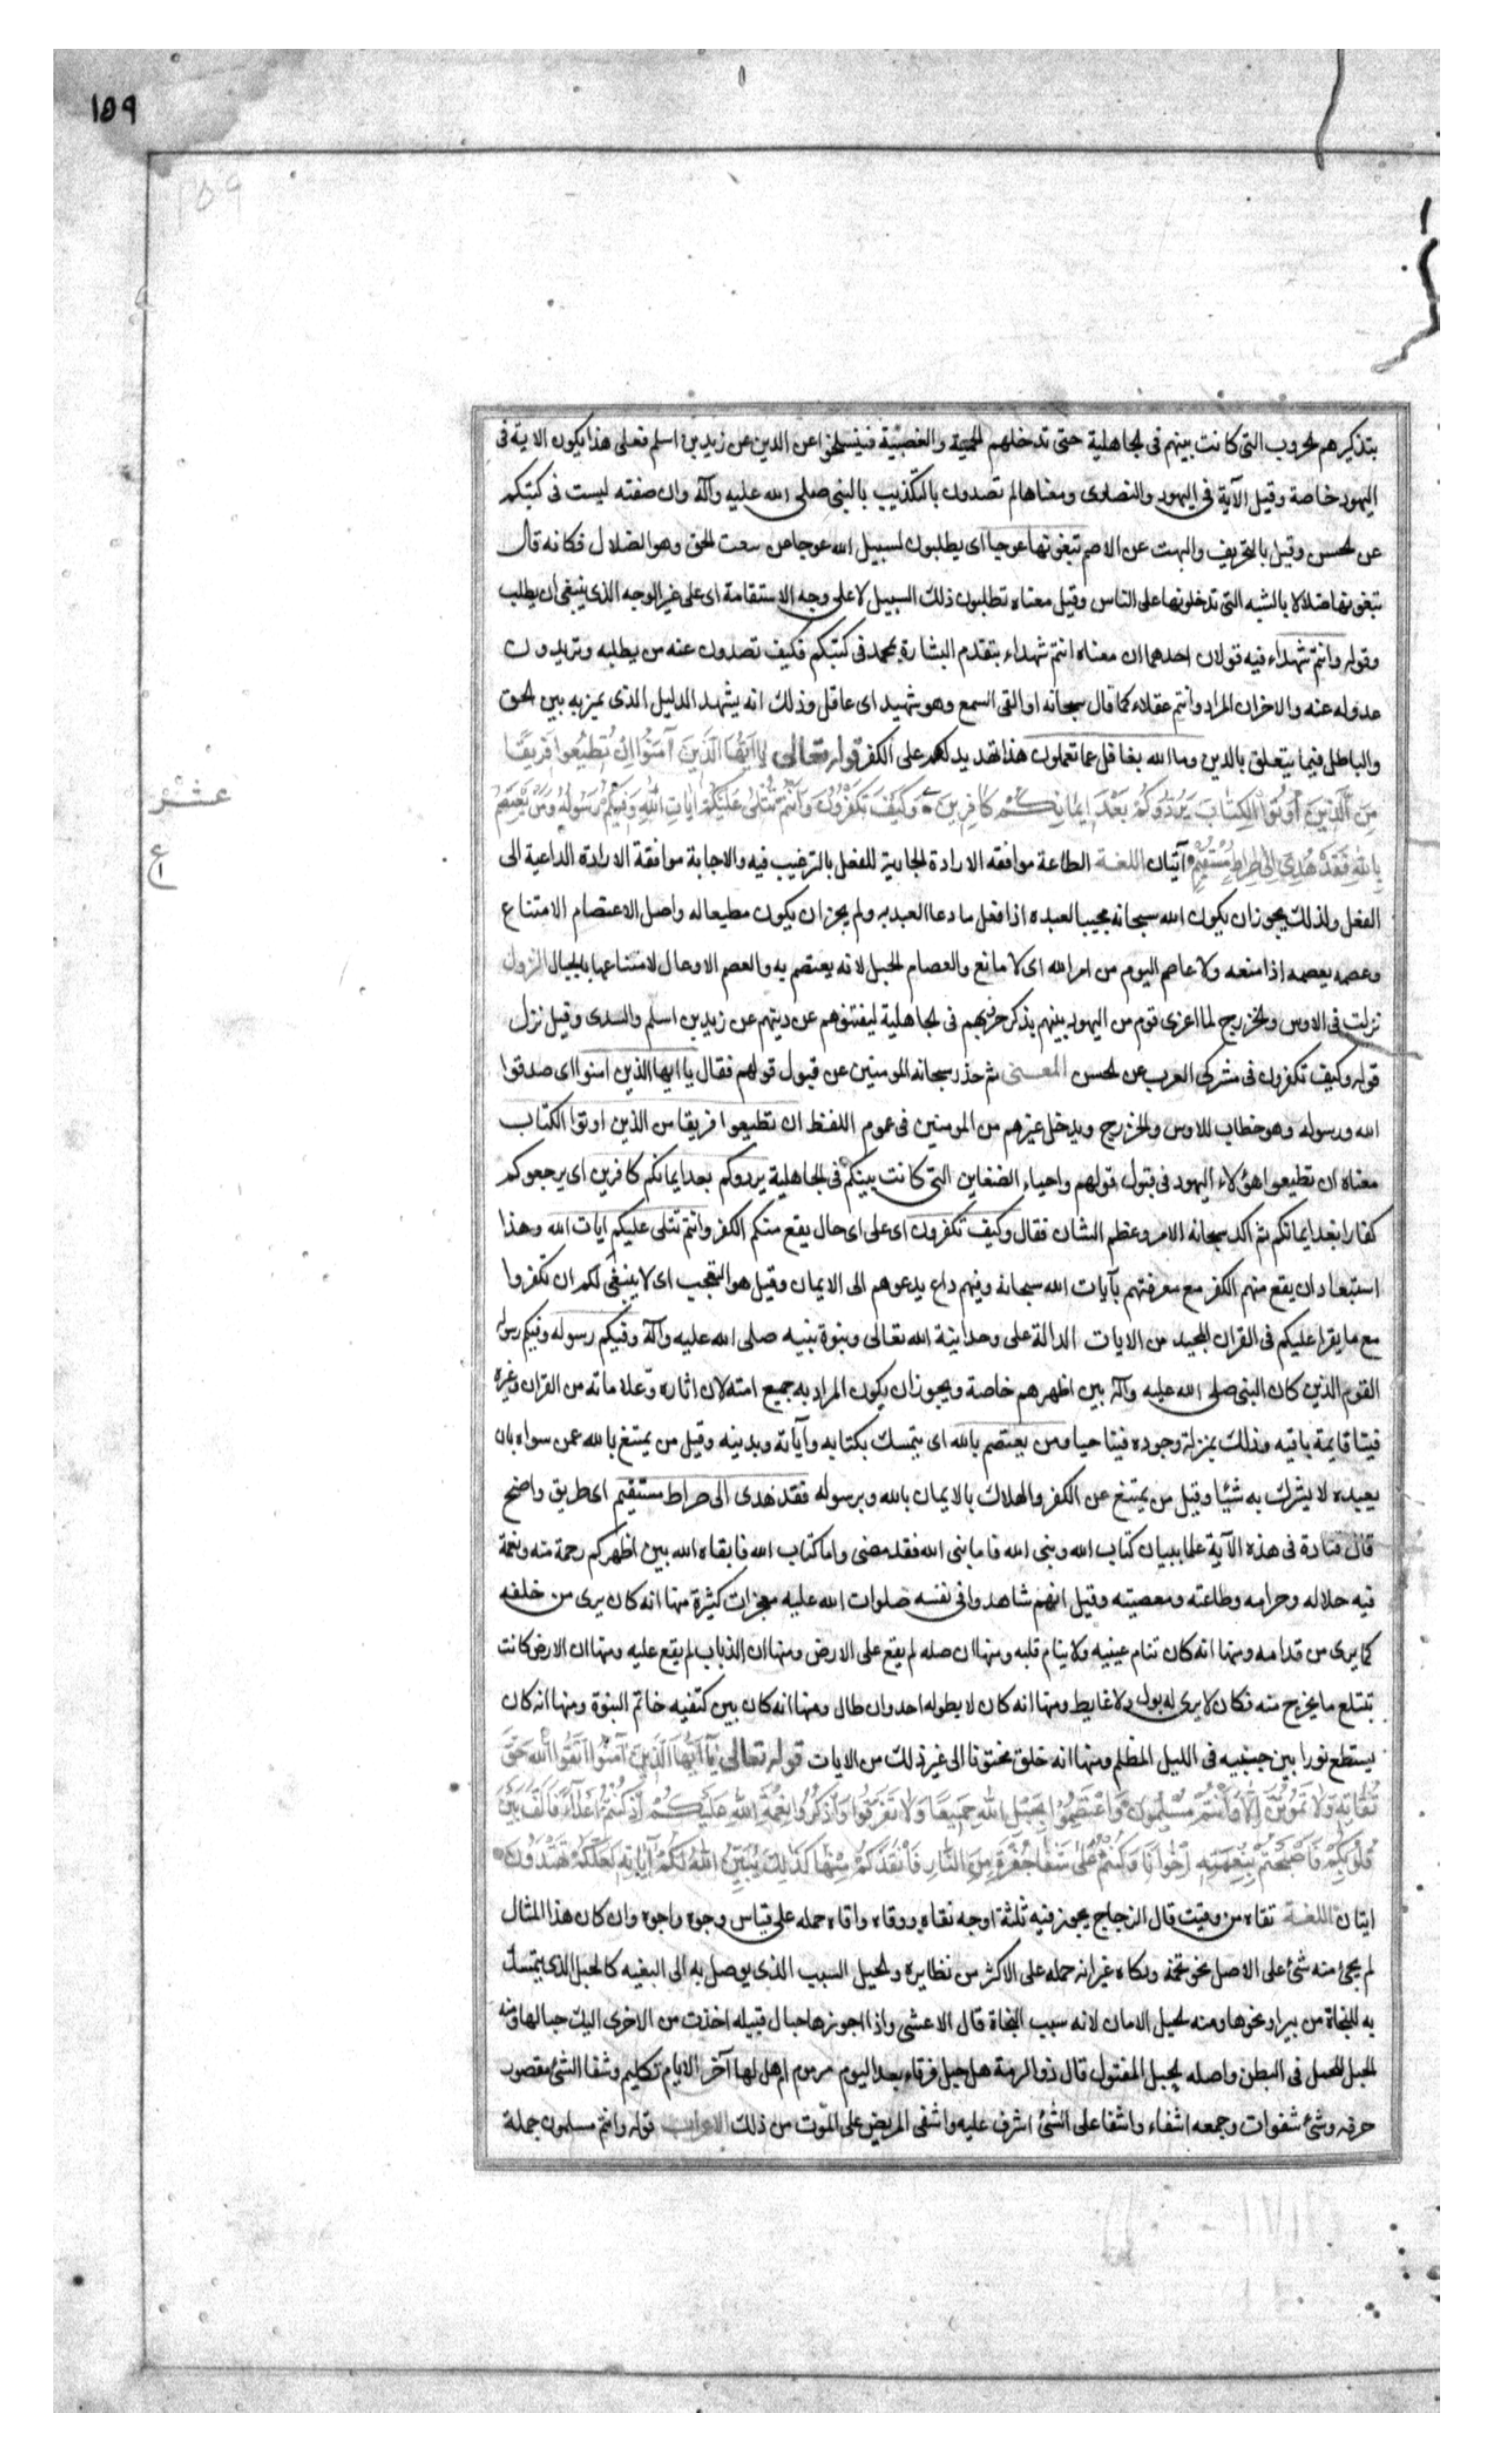 ١٥٩
١٥٩
بتذكيرهم الحروب التى كانت بينهم فى الجاهلية حتى تدخلهم الحمية والعصبية فينسلخوا عن الدين عن زيد بن اسلم فعلى هذا يكون الاية فى
اليهود خاصة وقيل الآية فى اليهود والنصارى ومعناها لم تصدون بالتكذيب بالنبى صلى الله عليه وآله وان صفته ليست فى كتبكم
عن الحسن وقيل بالتحريف والبهت عن الاصم تبغونها عوجا اى يطلبون لسبيل الله عوجا عن سمت الحق وهو الضلال فكانه قال
تبغونها ضلالا بالشبه التى تدخلونها على الناس وقيل معناه تطلبون ذلك السبيل لا على وجه الاستقامة اى على غير الوجه الذى ينبغى ان يطلب
وقوله وانتم شهداء فيه قولان احدهما ان معناه انتم شهداء بتقدم البشارة بمحمد فى كتبكم فكيف تصدون عنه من يطلبه وتريدون
عدوله عنه والاخر ان المراد وانتم عقلاء كما قال سبحانه او القى السمع وهو شهيد اى عاقل وذلك انه يشهد الدليل الذى يميز به بين الحق
والباطل فيما يتعلق بالدين وما الله بغافل عما تعملون هذا تهديد لهم على الكفر قوله تعالى يا ايها الذين آمنوا ان تطيعوا فريقا
من الذين اوتوا الكتاب يردوكم بعد ايمانكم كافرين وكيف تكفرون وانتم تتلى عليكم ايات الله وفيكم رسوله ومن يعتصم
عشر
بالله فقد هدى الى صراط مستقيم آتيان اللغة الطاعة موافقه الارادة الجاذبة للفعل بالترغيب فيه والاجابة موافقة الارادة الداعية الى
ع
الفعل ولذلك يجوز ان يكون الله سبحانه مجيبا لعبده اذا فعل ما دعا العبد به ولم يجز ان يكون مطيعا له واصل الاعتصام الامتناع
وعصمه يعصمه اذا منعه ولا عاصم اليوم من امر الله اى لا مانع والعصام الحبل لانه يعتصم به والعصم الاوعال لامتناعها بالجبال النزول
نزلت فى الاوس والخزرج لما اغرى قوم من اليهود بينهم بذكر حروبهم فى الجاهلية ليفتنوهم عن دينهم عن زيد بن اسلم والسدى وقيل نزل
قوله وكيف تكفرون فى مشركى العرب عن الحسن المعنى ثم حذر سبحانه المومنين عن قبول قولهم فقال يا ايها الذين امنوا اى صدقوا
الله ورسوله وهو خطاب للاوس والخزرج ويدخل غيرهم من المومنين فى عموم اللفظ ان تطيعوا فريقا من الذين اوتوا الكتاب
معناه ان تطيعوا هؤلاء اليهود فى قبول قولهم واحياء الضغاين التى كانت بينكم فى الجاهلية يردوكم بعد ايمانكم كافرين اى يرجعوكم
كفارا بعد ايمانكم ثم اكد سبحانه الامر وعظم الشان فقال وكيف تكفرون اى على اى حال يقع منكم الكفر وانتم تتلى عليكم ايات الله وهذا
استبعاد ان يقع منهم الكفر مع معرفتهم بآيات الله سبحانه وفيهم داع يدعوهم الى الايمان وقيل هو التعجب اى لا ينبغى لكم ان تكفروا
مع ما يقرا عليكم فى القران المجيد من الايات الدالة على وحدانية الله تعالى ونبوة نبيه صلى الله عليه وآله وفيكم رسوله وفيكم رسول
القوم الذين كان النبى صلى الله عليه وآله بين اظهرهم خاصة ويجوز ان يكون المراد به جميع امته لان اثاره وعلاماته من القران وغيره
فينا قايمة باقيه وذلك بمنزلة وجوده فينا حيا ومن يعتصم بالله اى يتمسك بكتابه وآياته وبدينه وقيل من يمتنع بالله عمن سواه بان
يعبده لا يشرك به شيئا وقيل من يمتنع عن الكفر والهلاك بالايمان بالله وبرسوله فقد هدى الى صراط مستقيم اى طريق واضح
قال قتادة فى هذه الآية علمان بينان كتاب الله ونبى الله فاما نبى الله فقد مضى واما كتاب الله فابقاه الله بين اظهركم رحمة منه ونعمة
فيه حلاله وحرامه وطاعته ومعصيته وقيل انهم شاهدوا فى نفسه صلوات الله عليه معجزات كثيرة منها انه كان يرى من خلفه
كما يرى من قدامه ومنها انه كان تنام عينيه ولا ينام قلبه ومنها ان ظله لم يقع على الارض ومنها ان الذباب لم يقع عليه ومنها ان الارض كانت
تبتلع ما يخرج منه فكان لا يرى له بول ولا غايط ومنها انه كان لا يطوله احد وان طال ومنها انه كان بين كتفيه خاتم النبوة ومنها انه كان
يسطع نورا بين جبينيه فى الليل المظلم ومنها انه خلق مختونا الى غير ذلك من الايات قوله تعالى يا ايها الذين آمنوا اتقوا الله حق
تقاته ولا تموتن الا وانتم مسلمون واعتصموا بحبل الله جميعا ولا تفرقوا واذكروا نعمة الله عليكم اذ كنتم اعداء فالف بين
قلوبكم فاصبحتم بنعمته اخوانا وكنتم على شفا حفرة من النار فانقذكم منها كذلك يبين الله لكم آياته لعلكم تهتدون
ايتان اللغة تقاه من وقيت قال الزجاج يجوز فيه ثلثة اوجه تقاه ووقاه واقاه حمله على قياس وجوه واجوه وان كان هذا المثال
لم يجئ منه شئ على الاصل نحو تخمة وتكاه غير انه حمله على الاكثر من نظايره والحبل السبب الذى يوصل به الى البغيه كالحبل الذى يتمسك
به للنجاة من بير او نحوها ومنه الحبل الامان لانه سبب النجاة قال الاعشى واذا اجوزها حبال قبيله اخذت من الاخرى اليك حبالها ومنه
الحبل الحمل فى البطن واصله الحبل المفتول قال ذو الرمة هل حبل فرقاء بعد اليوم مرموم ام هل لها آخر الايام تكليم وشفا الشئ مقصور
حرفه وشئ شفوات وجمعه اشفاء واشفا على الشئ اشرف عليه واشفى المريض على الموت من ذلك الاعراب قوله وانتم مسلمون جملة